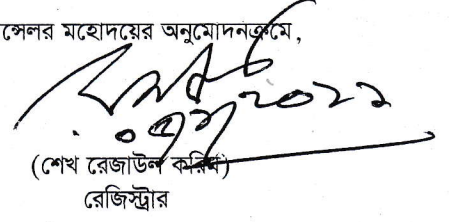 ন্সেলর মহোদয়ের অনুমোদনক্রমে,
(শেখ রেজাউল করিম)
রেজিস্ট্রার